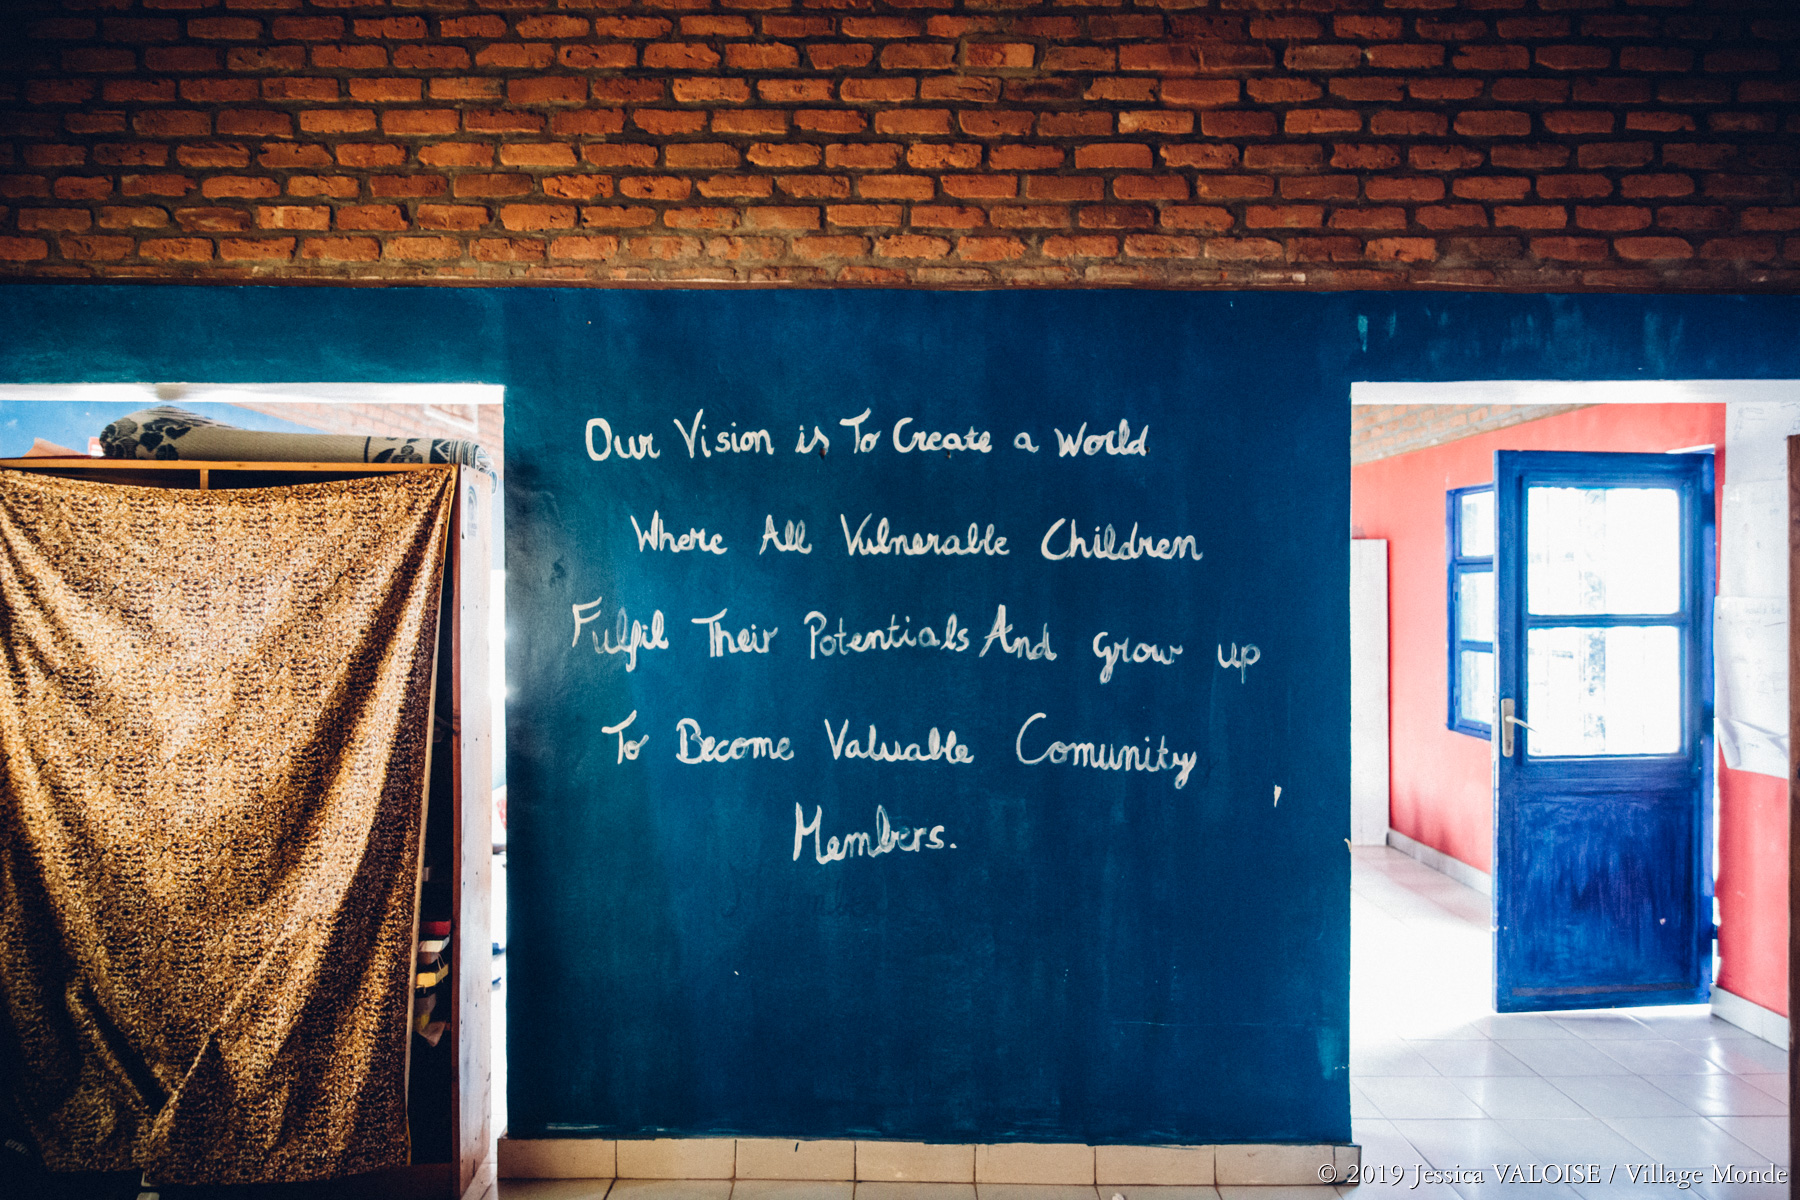 Our Vision is To Create a World
Where All Vulnerable Children
Fulfil Their Potentials And grow up
To Become Valuable Comunity
Members.
© 2019 Jessica VALOISE / Village Monde